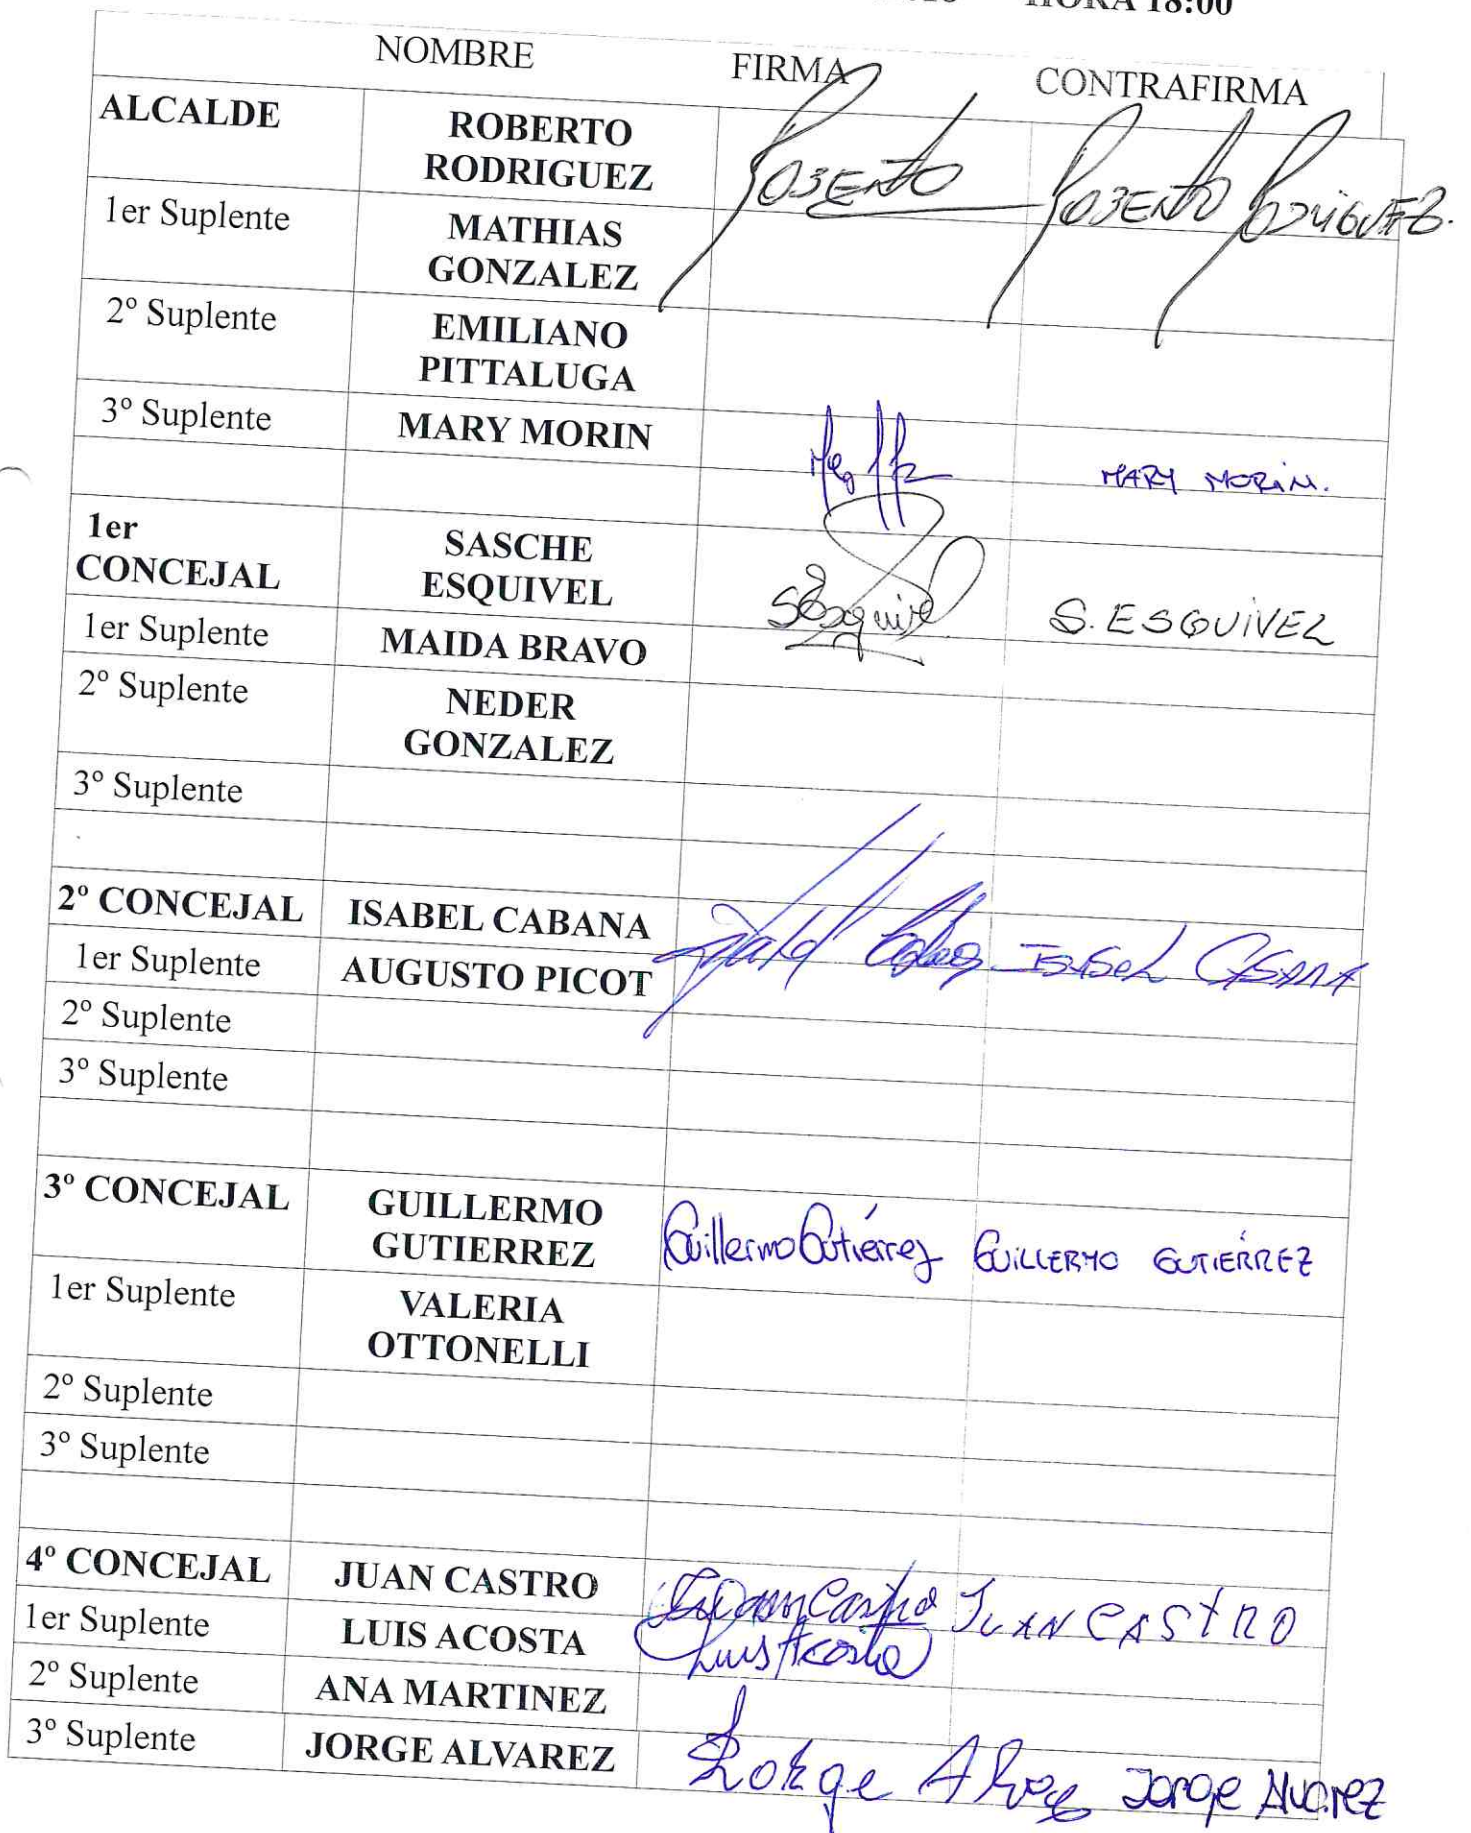 HORA 18:00
NOMBRE FIRMA CONTRAFIRMA
ALCALDE ROBERTO RODRIGUEZ Roberto Roberto Rodriguez.
1er Suplente MATHIAS GONZALEZ
2º Suplente EMILIANO PITTALUGA
3º Suplente MARY MORIN MARY MORiN.
1er CONCEJAL SASCHE ESQUIVEL SEsquivel S. ESQUiVEL
1er Suplente MAIDA BRAVO
2º Suplente NEDER GONZALEZ
3º Suplente
2º CONCEJAL ISABEL CABANA Isabel Cabana ISABEL CABANA
1er Suplente AUGUSTO PICOT
2º Suplente
3º Suplente
3º CONCEJAL GUILLERMO GUTIERREZ Guillermo Gutiérrez GUiLLERMO GUTIÉRREZ
1er Suplente VALERIA OTTONELLI
2º Suplente
3º Suplente
4º CONCEJAL JUAN CASTRO Juan Castro JUAN CASTRO
1er Suplente LUIS ACOSTA Luis Acosta
2º Suplente ANA MARTINEZ
3º Suplente JORGE ALVAREZ Jorge Alvarez Jorge Alvarez